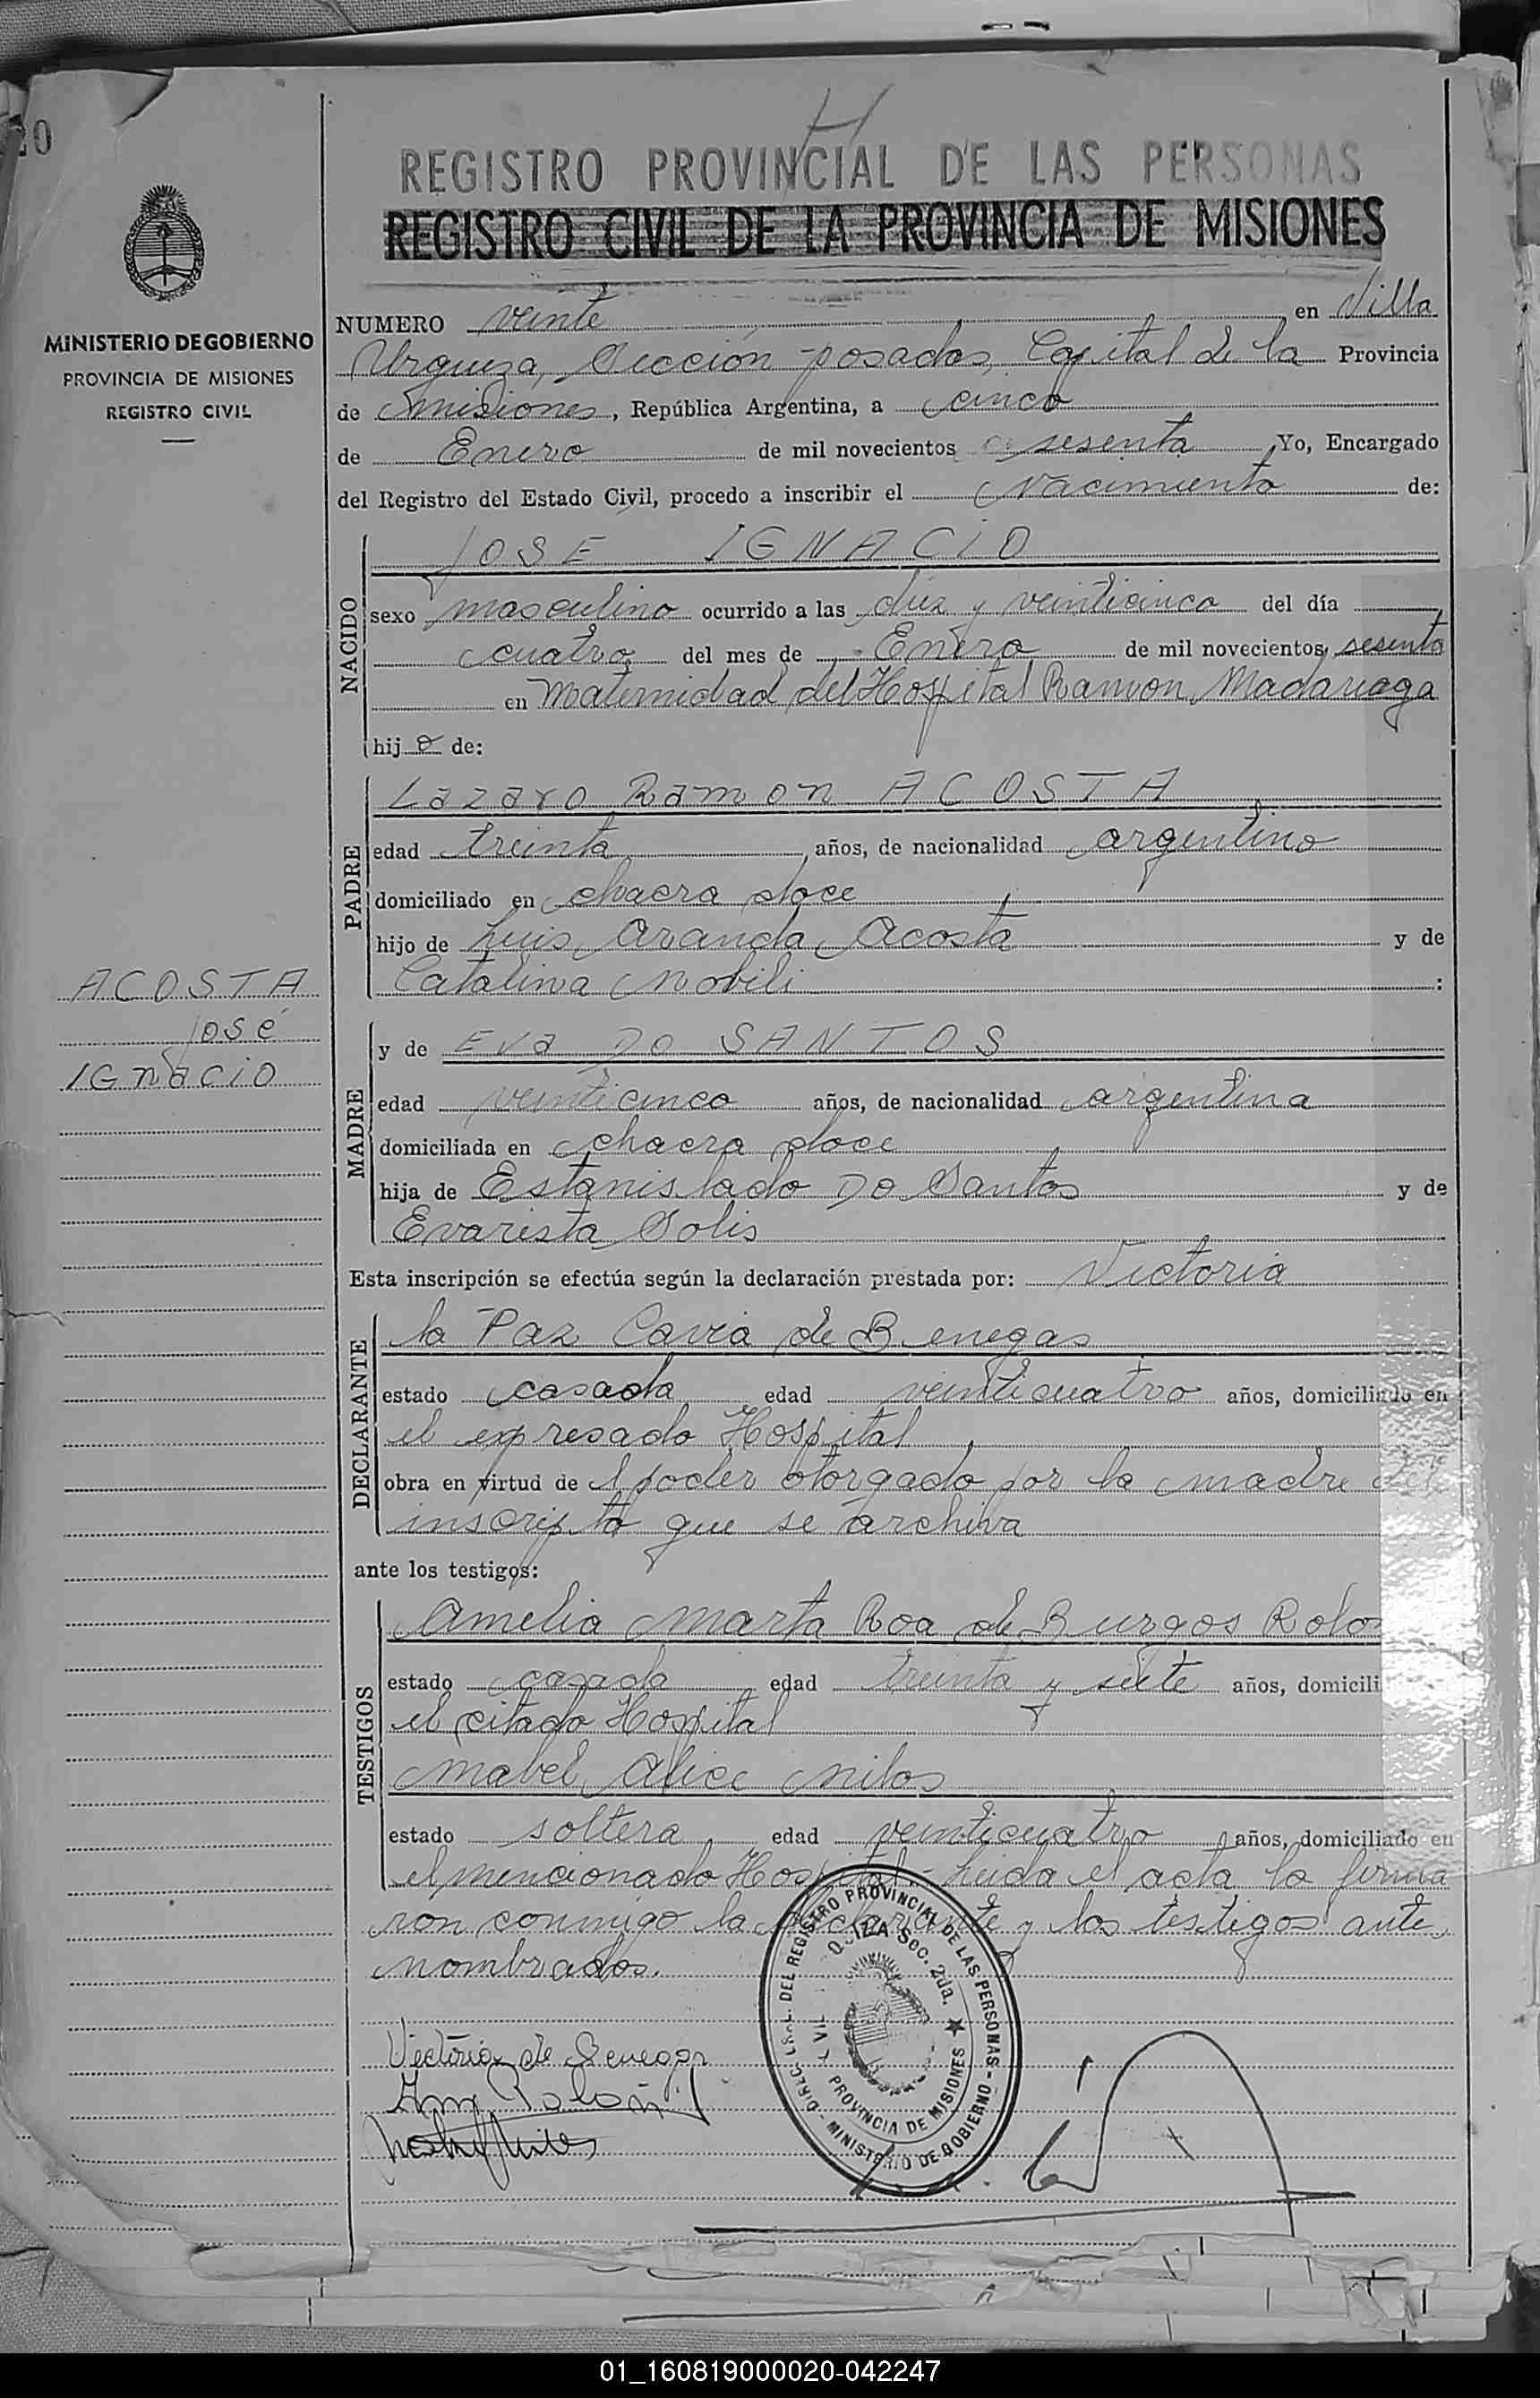 20
REGISTRO PROVINCIAL DE LAS PERSONAS
REGISTRO CIVIL DE LA PROVINCIA DE MISIONES
MINISTERIO DE GOBIERNO
PROVINCIA DE MISIONES
REGISTRO CIVIL
NUMERO veinte en Villa
Urquiza, Sección posadas, Capital de la Provincia
de Misiones, República Argentina, a cinco
de Enero de mil novecientos sesenta Yo, Encargado
del Registro del Estado Civil, procedo a inscribir el Nacimiento de:
NACIDO
JOSE IGNACIO
sexo masculino ocurrido a las diez y veinticinco del día
cuatro del mes de Enero de mil novecientos sesenta
en Maternidad del Hospital Ramon Madariaga
hijo de:
PADRE
Lazaro Ramon ACOSTA
edad treinta años, de nacionalidad argentino
domiciliado en chacra doce
hijo de Luis Aranda Acosta y de
Catalina Nobili :
ACOSTA
José
IGnacio
MADRE
y de Eva Do SANTOS
edad veinticinco años, de nacionalidad argentina
domiciliada en chacra doce
hija de Estanislado Do Santos y de
Evarista Solis
Esta inscripción se efectúa según la declaración prestada por: Victoria
DECLARANTE
la Paz Cavia de Benegas
estado casada edad veinticuatro años, domiciliado en
el expresado Hospital
obra en virtud del poder otorgado por la madre del
inscripto que se archiva
ante los testigos:
TESTIGOS
Amelia Marta Roa de Burgos Rolo
estado casada edad treinta y siete años, domicili
el citado Hospital
Mabel Alice Milos
estado soltera edad veinticuatro años, domiciliado en
el mencionado Hospital - Leida el acta la firma
ron conmigo la declarante y los testigos ante
nombrados.
DEL REGISTRO PROVINCIAL DE LAS PERSONAS - MINISTERIO DE GOBIERNO
Sec. 2da.
PROVINCIA DE MISIONES
Victoria de Benegas
01_160819000020-042247